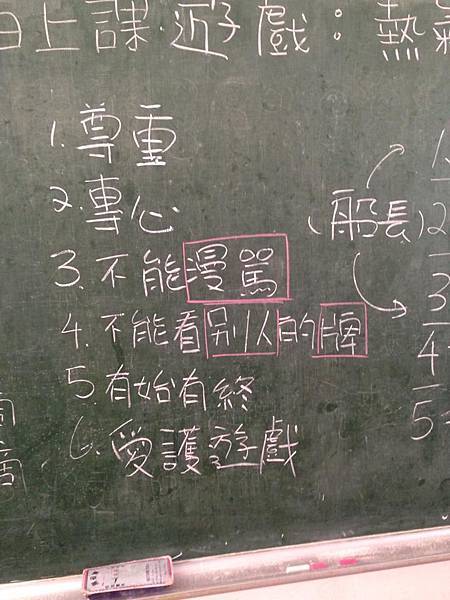 上課.遊戲:熱
1.尊重
2.專心
3.不能漫罵
4.不能看別人的牌
5.有始有終
6.愛護遊戲
(船長)
1
2
3
4
5